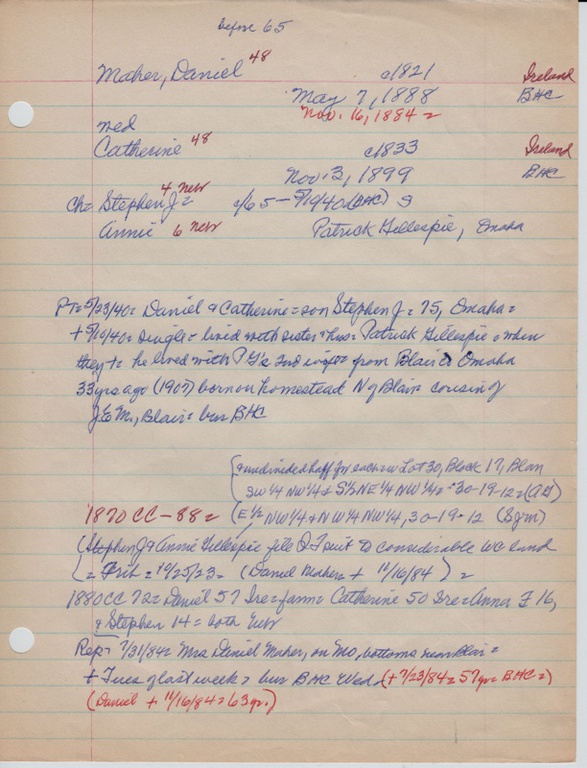 before 65
Maher, Daniel 48 c1821 Ireland
May 7, 1888 BHC
Nov. 16, 1884 =
med
Catherine 48 c1833 Ireland
Nov. 3, 1899 BHC
ch= Stephen J= 4 new c/65 - 5/1940 (BHC) S
Annie 6 new Patrick Gillespie, Omaha
PT= 5/23/40= Daniel & Catherine = son Stephen J = 75, Omaha =
+ 5/10/40 = single = lived with sister & hus = Patrick Gillespie = when
they + = he lived with P G's 2nd wife = from Blair to Omaha
33 yrs ago (1907) born on homestead N of Blair = cousin of
J. E. M., Blair = bur BHC
& undivided half for each = Lot 30, Block 17, Blair
SW 1/4 NW 1/4 & S 1/2 NE 1/4 NW 1/4 = 30-19-12 = (AG)
1870 CC - 88 = (E 1/2 NW 1/4 & NW 1/4 NW 1/4, 30-19-12 (SJM)
(Stephen J & Annie Gillespie file Q T suit to considerable WC land
= Trib = 10/25/23 = (Daniel Maher + 11/16/84) =
1880 CC 72 = Daniel 57 Ire = farm = Catherine 50 Ire = Anna F 16,
& Stephen 14 = both Neb
Rep = 7/31/84 = Mrs Daniel Maher, on Mo, bottoms near Blair =
+ Tues of last week = bur BHC Wed. (+ 7/23/84 = 57 yr = BHC =)
(Daniel + 11/16/84 = 63 yr.)